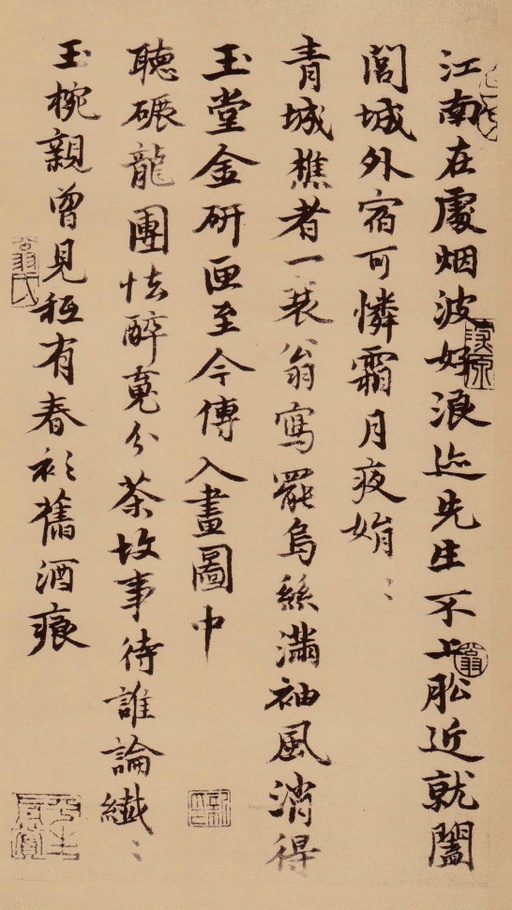 江南在處烟波好浪迹先生不上舩近就闔
閭城外宿可憐霜月夜娟〻
青城樵者一蓑翁寫罷烏絲滿袖風消得
玉堂金研匣至今傳入畫圖中
聽碾龍團怯醉䰟分茶故事待誰論纖〻
玉椀親曾見秖有春衫舊酒痕
翁氏